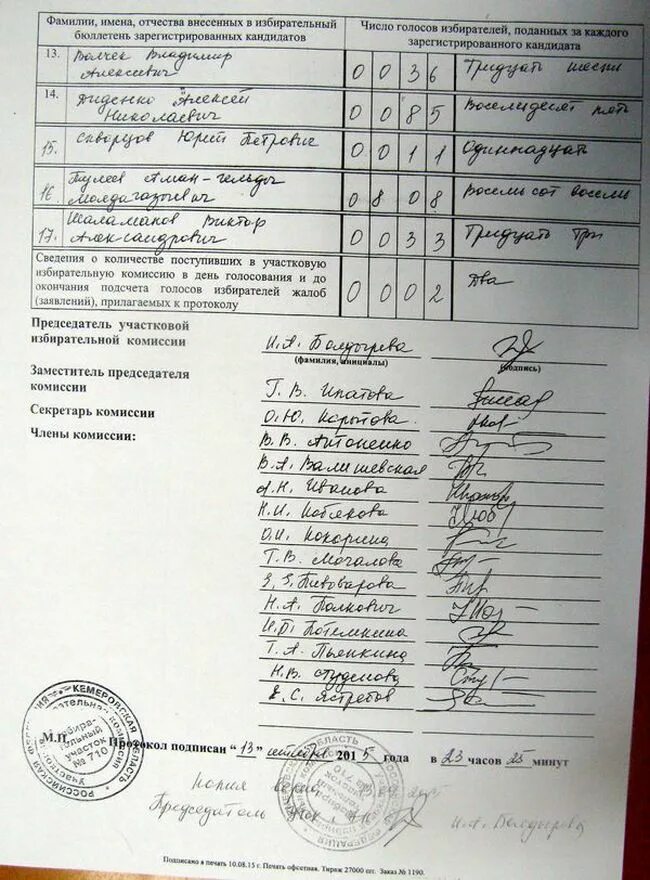 Фамилии, имена, отчества внесенных в избирательный
бюллетень зарегистрированных кандидатов
Число голосов избирателей, поданных за каждого
зарегистрированного кандидата
13. Волчек Владимир
Алексеевич
0 0 3 6 Тридцать шесть
14. Диденко Алексей
Николаевич
0 0 8 5 Восемьдесят пять
15. Скворцов Юрий Петрович
0 0 1 1 Одиннадцать
16. Тулеев Аман-гельды
Молдагазыевич
0 8 0 8 Восемьсот восемь
17. Шаламанов Виктор
Александрович
0 0 3 3 Тридцать три
Сведения о количестве поступивших в участковую
избирательную комиссию в день голосования и до
окончания подсчета голосов избирателей жалоб
(заявлений), прилагаемых к протоколу
0 0 0 2 Два
Председатель участковой
избирательной комиссии
И.А. Болдырева
(фамилия, инициалы) (подпись)
Заместитель председателя
комиссии
Г.В. Ипатова
Секретарь комиссии
О.Ю. Корытова
Члены комиссии:
В.В. Антоненко
В.А. Валишевская
А.Н. Иванова
Н.И. Кобякова
О.И. Кокорина
Т.В. Мочалова
З.З. Пивоварова
Н.А. Полкович
И.П. Потемкина
Т.А. Пьянкина
Н.В. Студенова
Е.С. Ястребов
КЕМЕРОВСКАЯ ОБЛАСТЬ
РОССИЙСКАЯ ФЕДЕРАЦИЯ
Избира-
тельный
участок
№ 710
М.П. Протокол подписан " 13 " сентября 2015 года в 23 часов 25 минут
Копия верна
Председатель И.А. Болдырева
Подписано в печать 10.08.15 г. Печать офсетная. Тираж 27000 шт. Заказ № 1190.